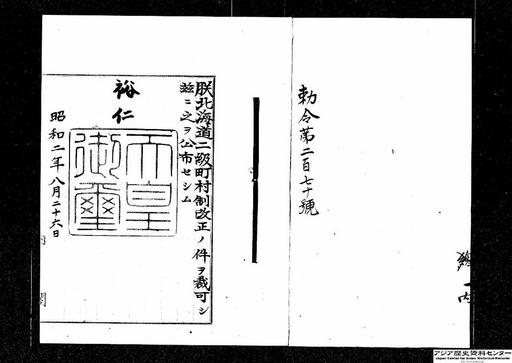 朕北海道二級町村制改正ノ件ヲ裁可シ
玆ニ之ヲ公布セシム
裕仁
天皇御璽
昭和二年八月二十六日
内閣
勅令第二百七十號
一内
アジア歴史資料センター
Japan Center for Asian Historical Records